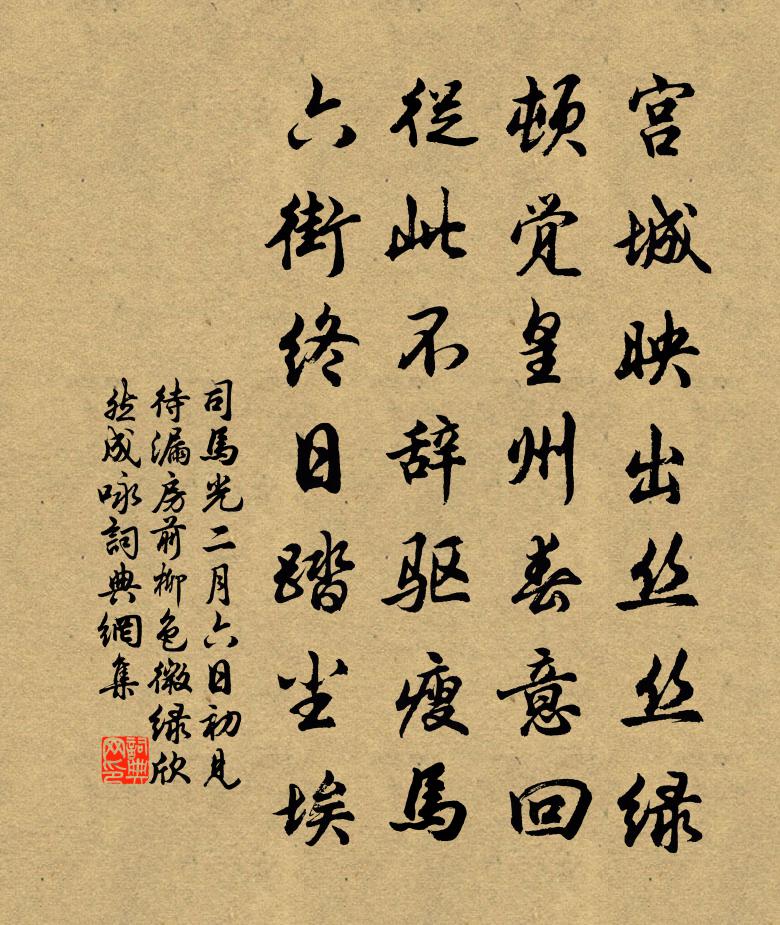 宫城映出丝丝绿
顿觉皇州春意回
從此不辞驱瘦馬
六街终日踏尘埃
司馬光二月六日初見
待漏房前柳色微绿欣
然成咏詞典網集
詞典网印